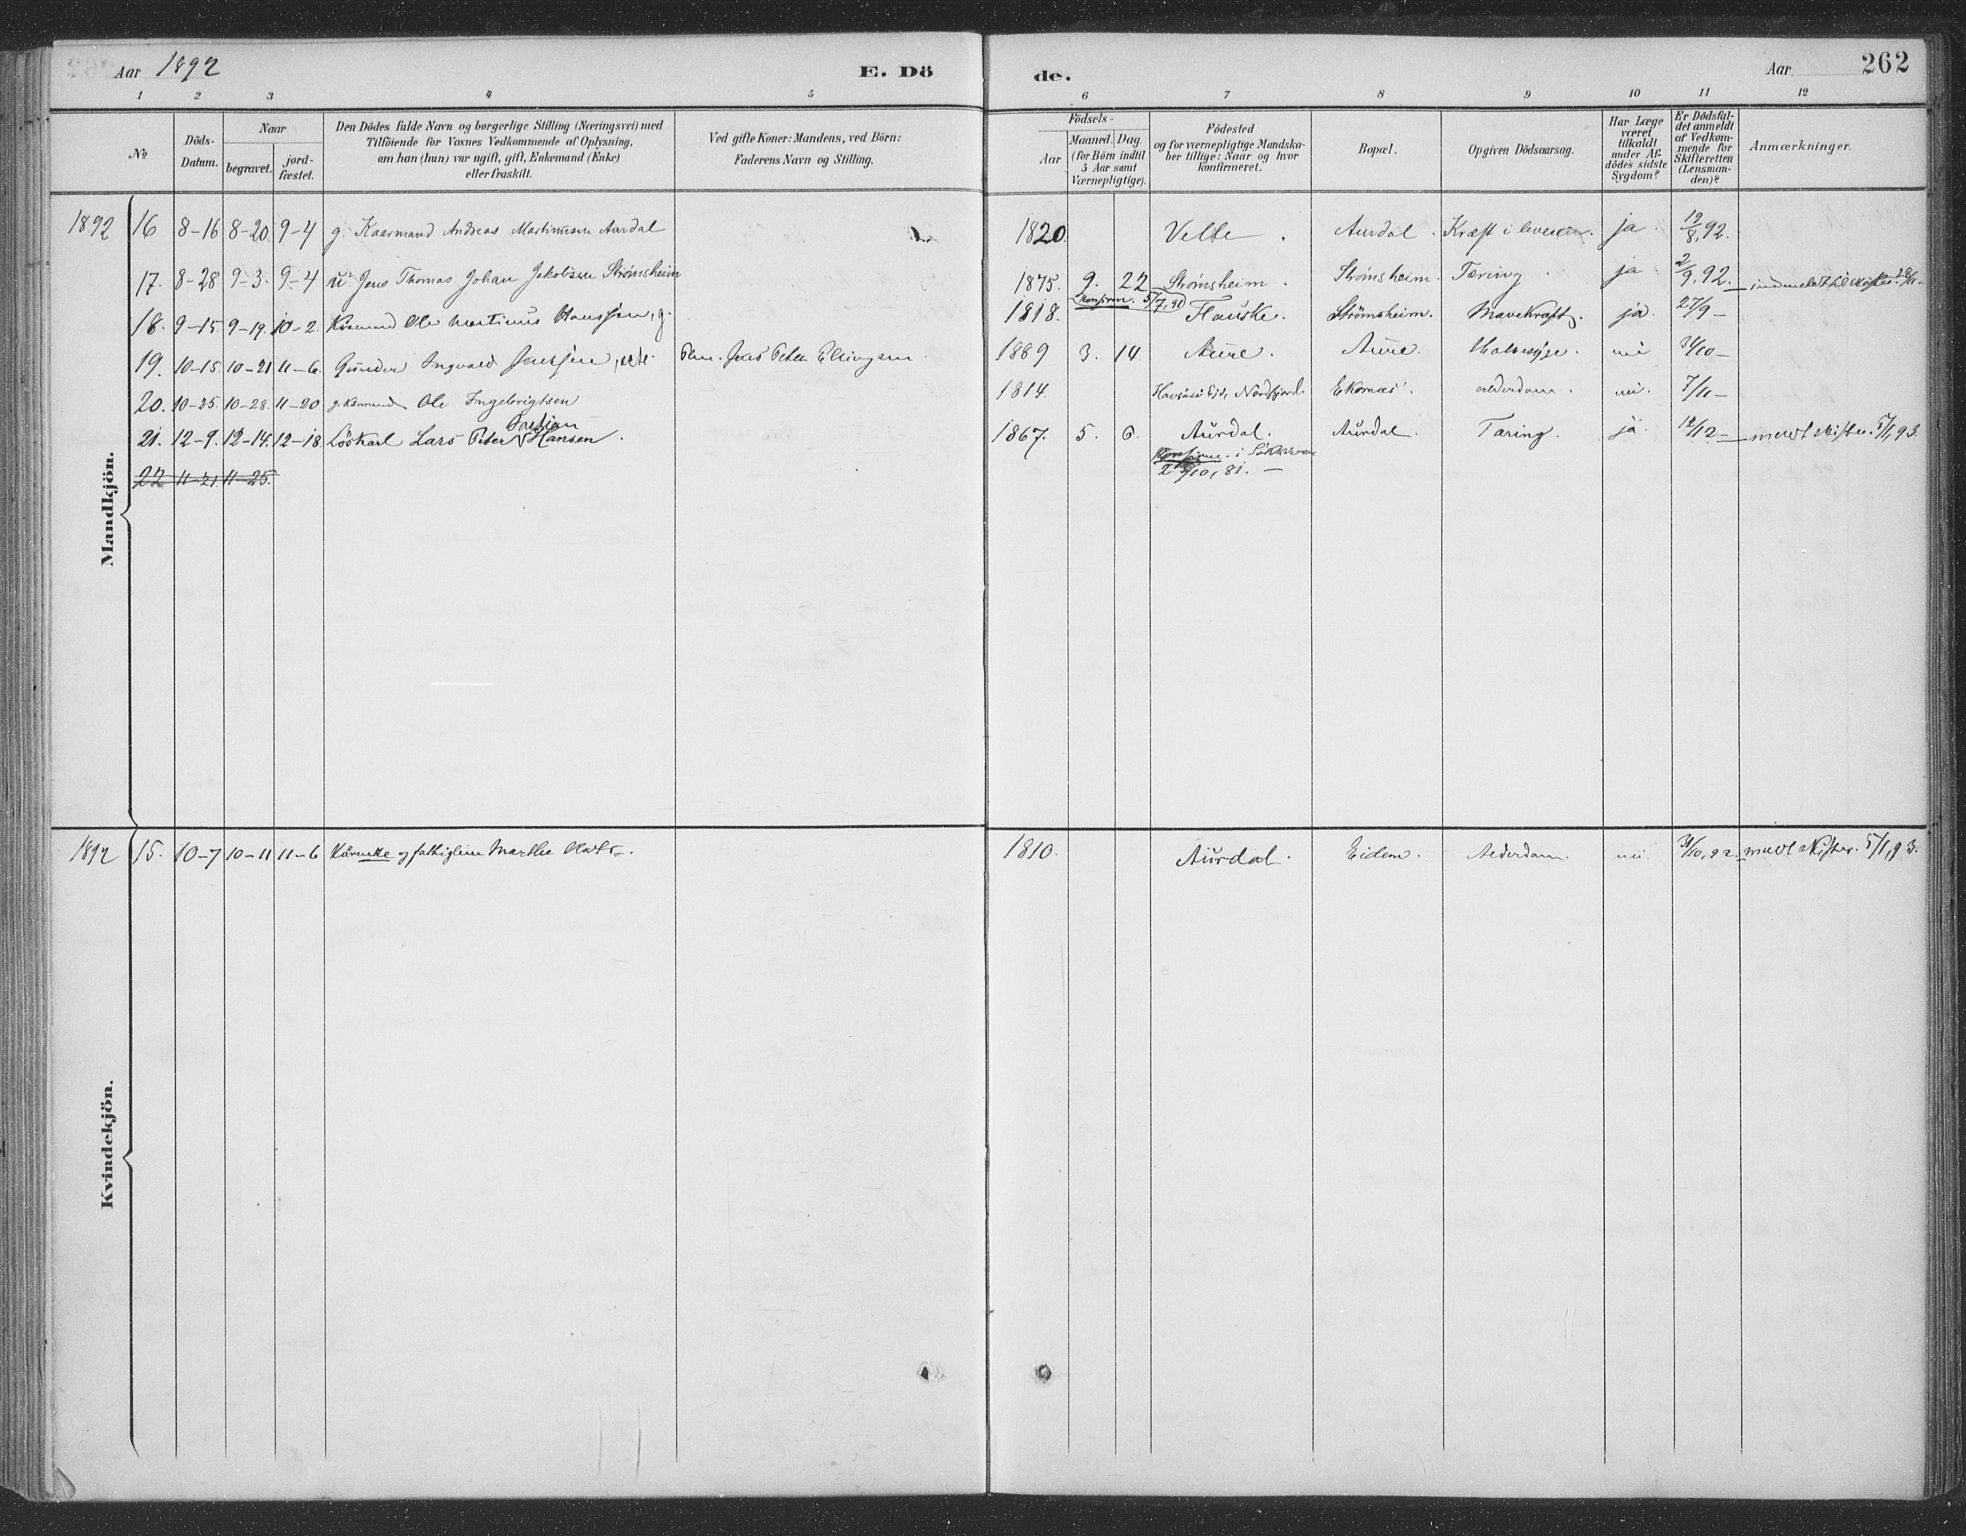 Aar 1892 E. Dö
de. Aar 262
1 2 3 4 5 6 7 8 9 10 11 12
No
Döds-
Datum.
Naar
begravet.
jord-
fæstet.
Den Dödes fulde Navn og borgerlige Stilling (Næringsvei) med
Tilföiende for Voxnes Vedkommende af Oplysning,
om han (hun) var ugift, gift, Enkemand (Enke)
eller fraskilt.
Ved gifte Koner: Mandens, ved Börn:
Faderens Navn og Stilling.
Födsels-
Aar
Maaned. Dag.
(for Börn indtil
5 Aar samt
Værnepligtige).
Födested
og for værnepligtige Mandska-
ber tillige: Naar og hvor
konfirmeret.
Bopæl.
Opgiven Dödsaarsag.
Har Læge
været
tilkaldt
under Af-
dödes sidste
Sygdom?
Er Dödsfal-
det anmeldt
af Vedkom-
mende for
Skifteretten
(Lensman-
den)?
Anmærkninger.
Mandkjön.
1892 16 8-16 8-20 9-4 g. Kaarmand Andreas Martinussen Aurdal 1820. Velle. Aurdal. Kræft i leveren. ja. 19/8, 92.
17. 8-28 9-3. 9-4 u. Jens Thomas Johan Jakobsen Strömsheim 1875. 9. 22 Strömsheim. Strömsheim. Tæring. ja 2/9, 92.
Konfirm. 5/7, 91
18. 9-15. 9-19. 10-2. Kaarmand Ole Martinus Hanssen, g. 1818. Hauske. Strömsheim. Mavekræft. ja. 27/9 —
19. 10-15. 10-21 11-6. Gunder Ingvald Jenssen, ekte. Plm. Jens Peter Ellingsen. 1889 3. 14. Aure. Aure. Halssyge. nei 31/10 —
20. 10-25. 10-28. 11-20 g. Kaarmand Ole Ingebrigtsen 1814. Nordfjord. Ekornæs. alderdom. nei. 7/11 —
Bastian
21. 12-9. 12-14. 12-18 Löskarl Lars Peter Hansen. 1867. 5. 6. Aurdal. Aurdal. Tæring. ja 12/12 — meldt skifter. 5/1, 93.
Konfirm. i
2/10, 81. —
22 11-21. 11-25.
Kvindekjön.
1892 15. 10-7 10-11 11-6 Kårenke og fattiglem Marthe 1810. Aurdal. Eidem. Alderdom. nei 31/10, 92 meldt skifter. 5/1, 93.